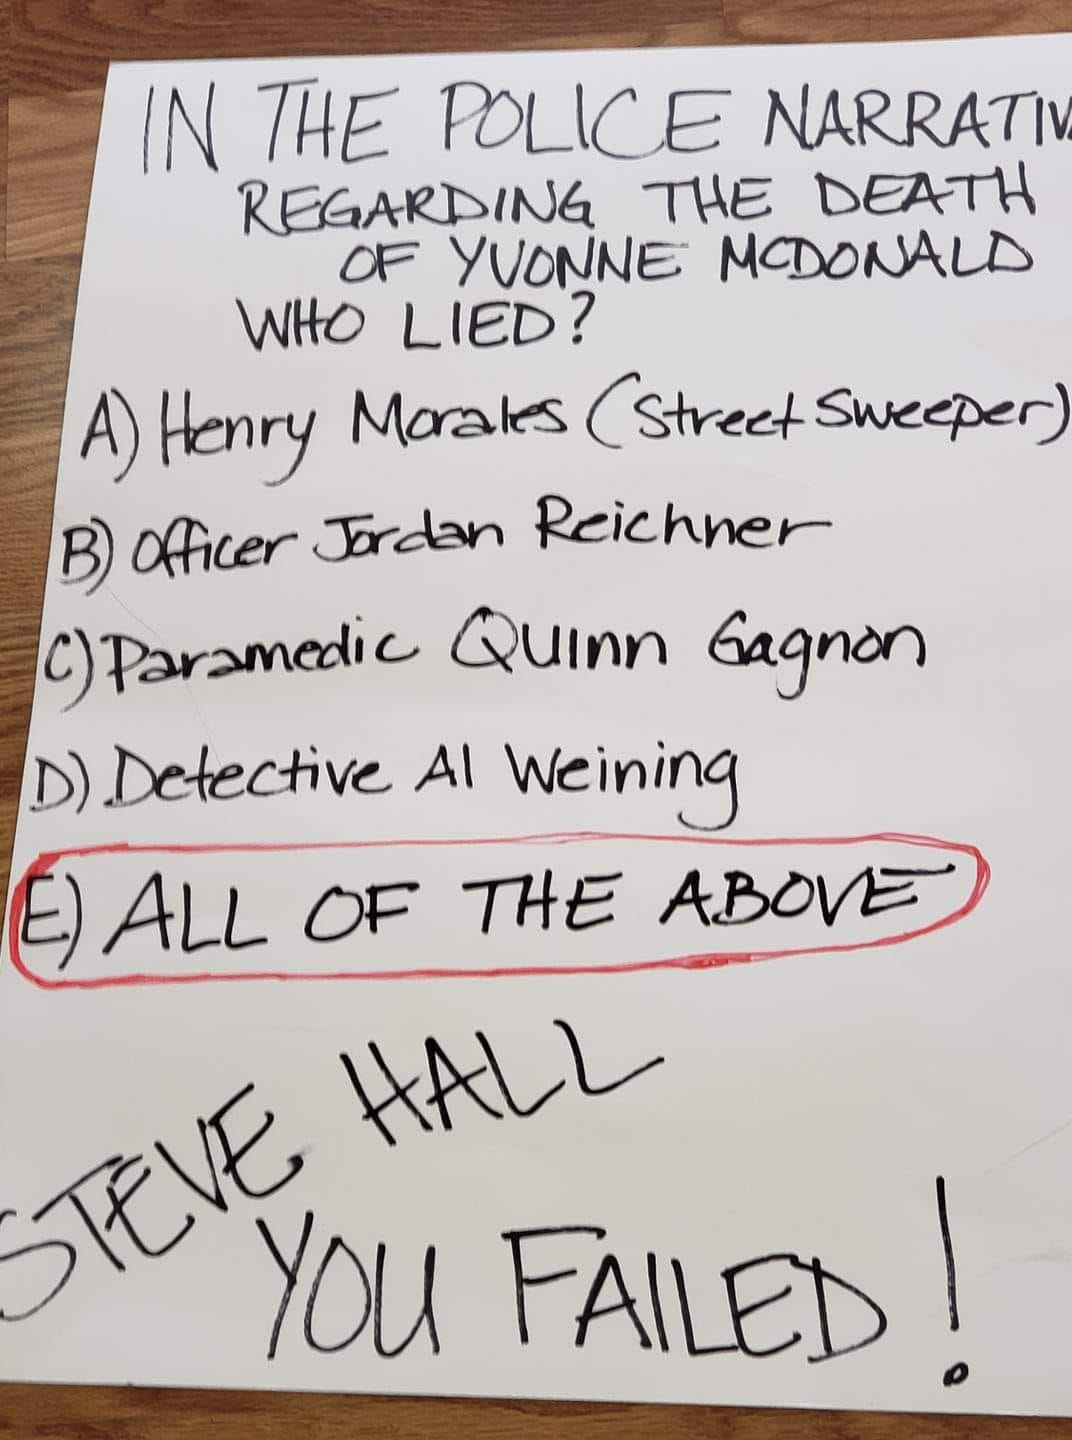 IN THE POLICE NARRATIV
REGARDING THE DEATH
OF YVONNE MCDONALD
WHO LIED?
A) Henry Morales (Street Sweeper)
B) Officer Jordan Reichner
C) Paramedic Quinn Gagnon
D) Detective Al Weining
E) ALL OF THE ABOVE
STEVE HALL
YOU FAILED!